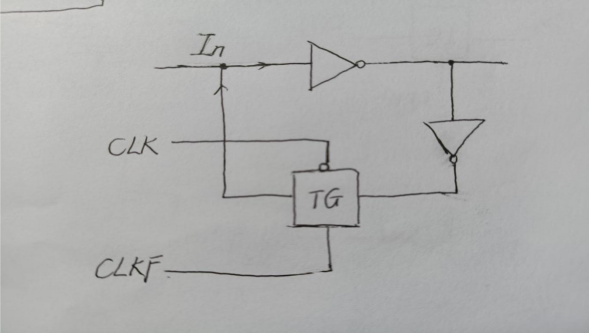 In
CLK
TG
CLKF